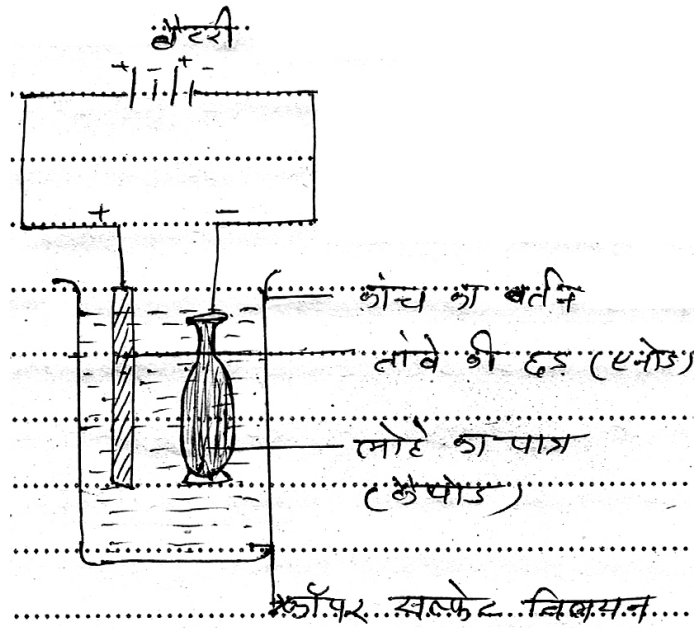 बैटरी
+ - + -
+ -
कांच का बर्तन
तांबे की छड (एनोड)
लोहे का पात्र
(कैथोड)
कॉपर सल्फेट विलयन